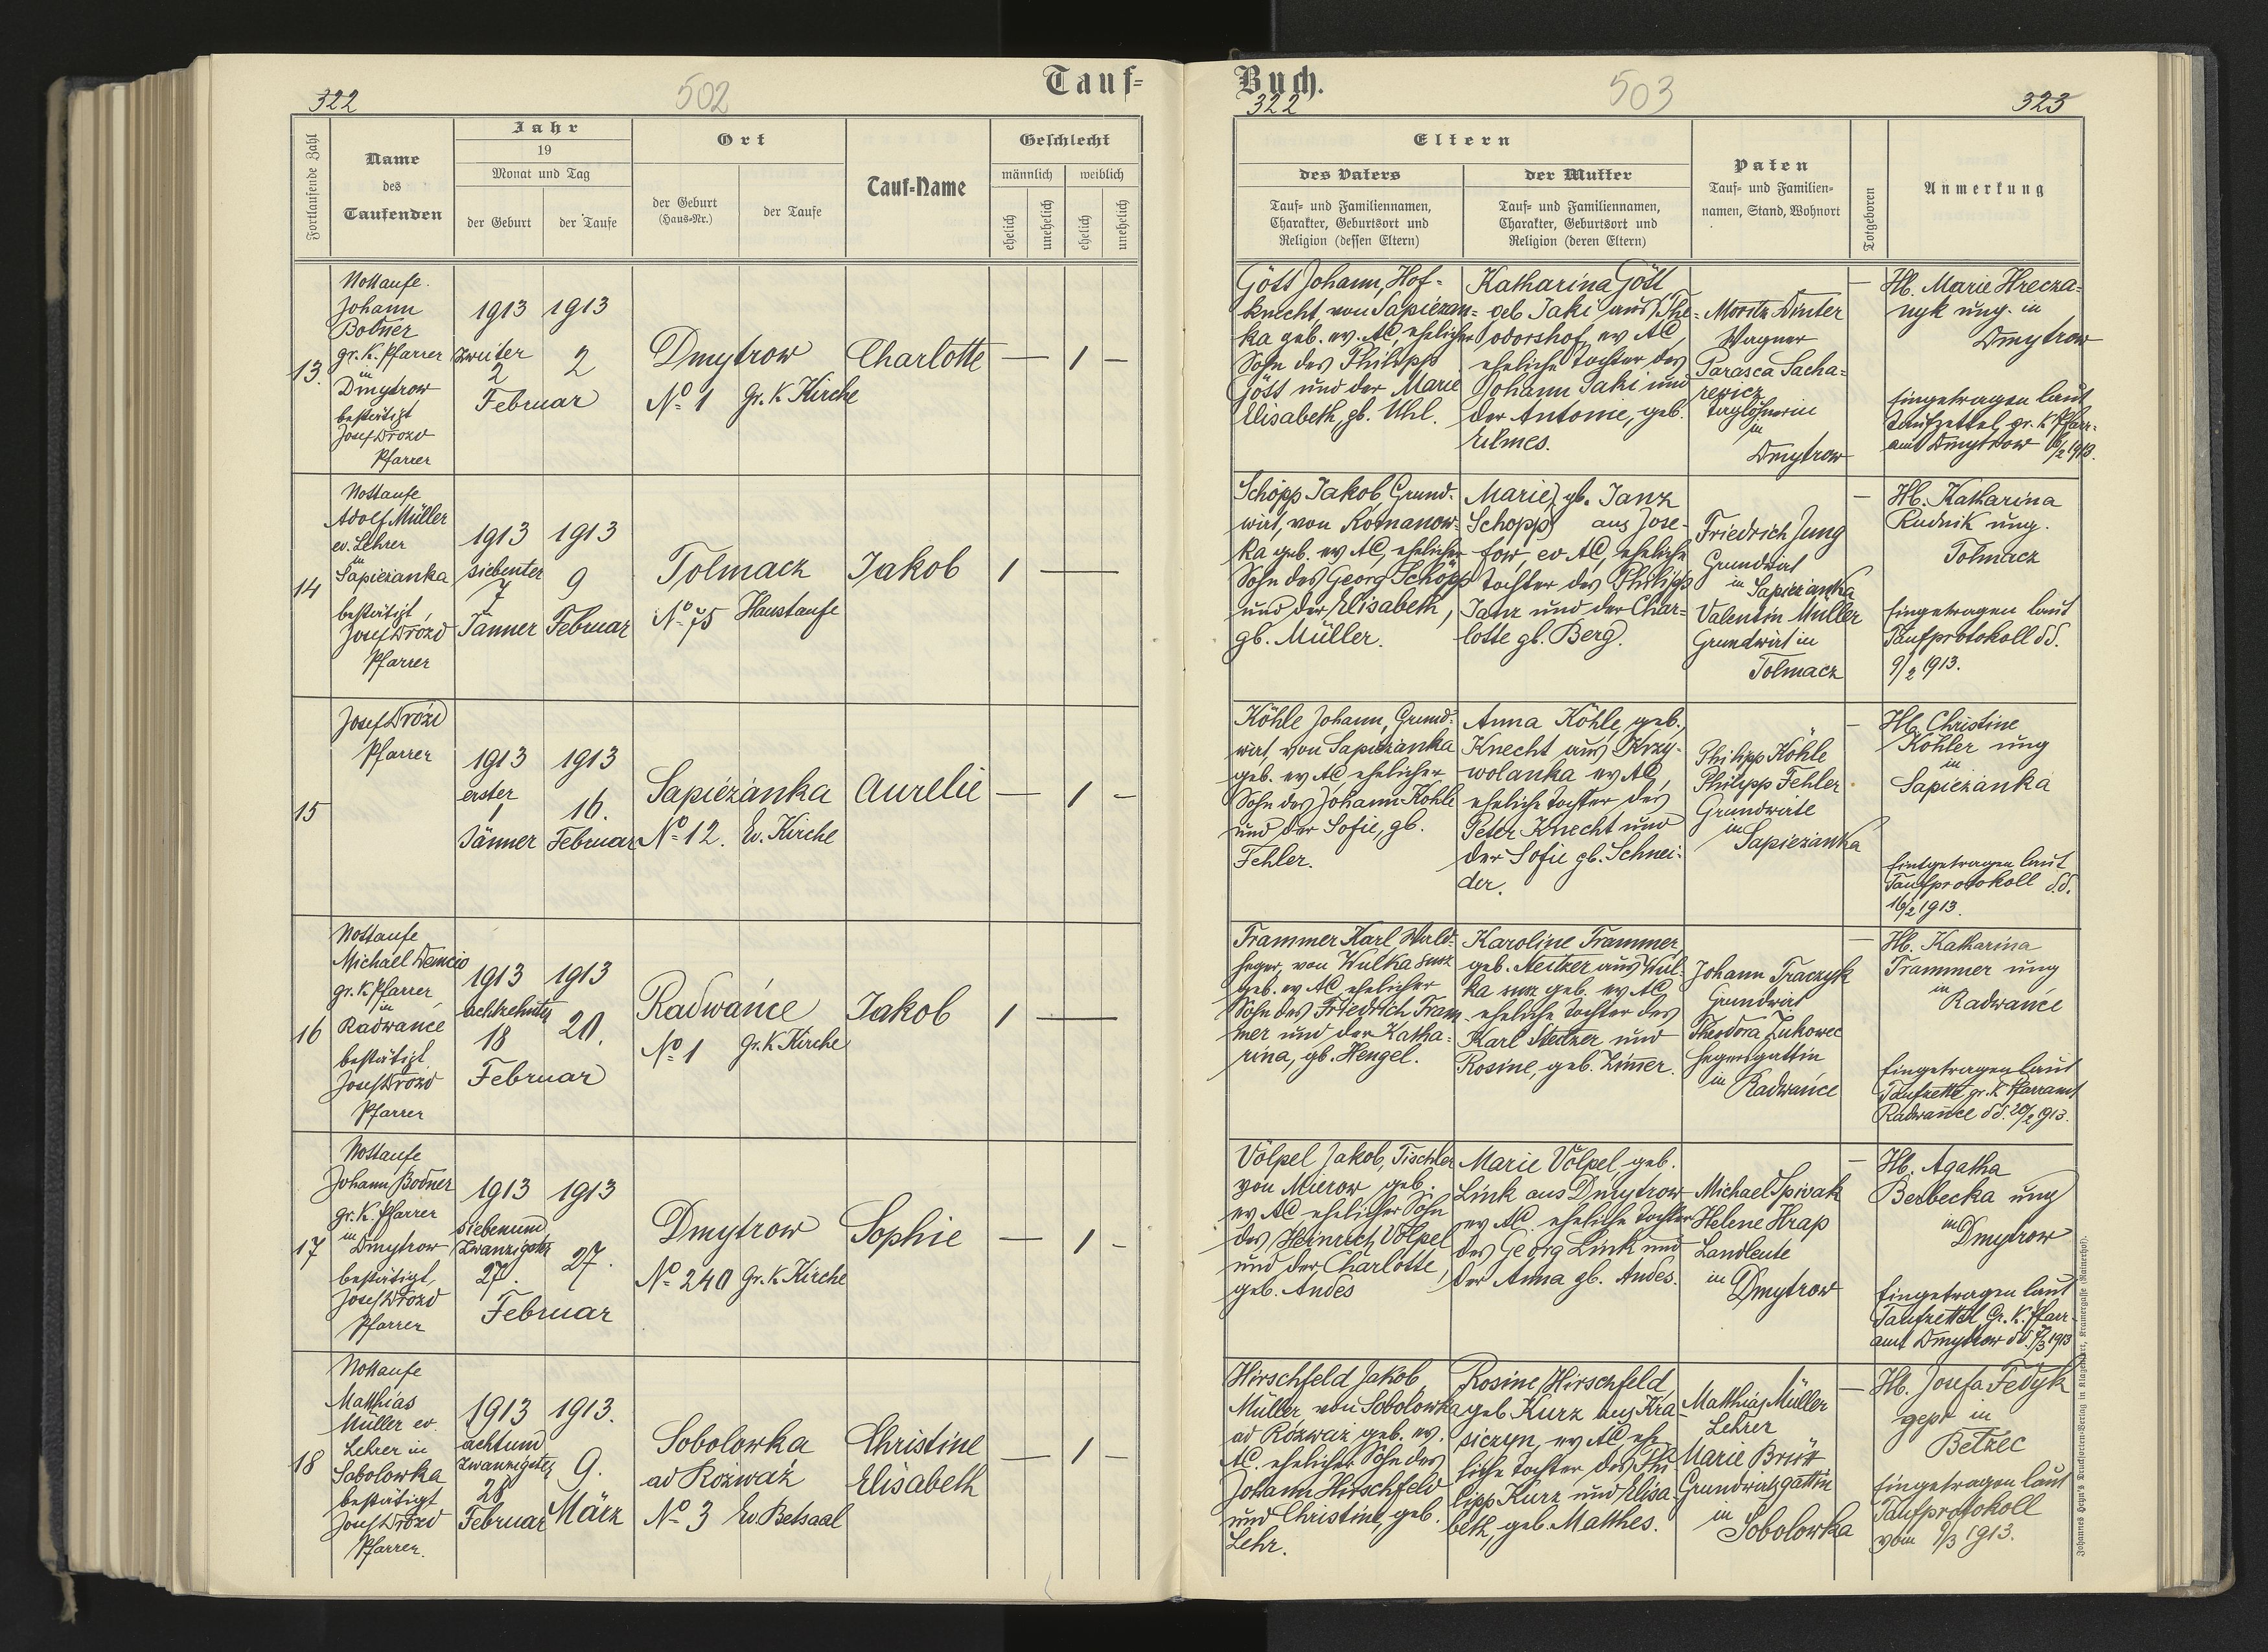 322
502
Tauf=
Fortlaufende Zahl
Name
des
Taufenden
Jahr
19
Monat und Tag
der Geburt
der Taufe
Ort
der Geburt
(Haus=Nr.)
der Taufe
Tauf=Name
Geschlecht
männlich
weiblich
ehelich
unehelich
ehelich
unehelich
13.
Nottaufe.
Johann
Bodner
gr. K. Pfarrer
in
Dmytrow
bestätigt
Josef Drozd
Pfarrer
1913
zweiter
2
1913
2
Februar
Dmytrow
No 1
gr. K Kirche
Charlotte
— 1 —
14
Nottaufe
Adolf Müller
ev. Lehrer
in
Sapiezanka
bestätigt
Josef Drózd
Pfarrer
1913
siebenter
7
Jänner
1913
9
Februar
Tolmacz
No 75
Haustaufe
Jakob
1 —
15
Josef Drózd
Pfarrer
1913
erster
1
Jänner
1913
16.
Februar
Sapiézánka
No 12.
Ev. Kirche
Aurelie
— 1 —
16
Nottaufe
Michael Demcio
gr. K Pfarrer
in
Radwańce
bestätigt
Josef Drozd
Pfarrer
1913
achtzehnter
18
1913
20.
Februar
Radwańce
No 1
gr. K Kirche
Jakob
1 —
17
Nottaufe
Johann Bodner
gr. K. Pfarrer
in
Dmytrow
bestätigt,
Josef Drozd
Pfarrer
1913
siebenund
zwanzigster
27.
1913
27.
Februar
Dmytrow
No 240
gr. K Kirche
Sophie
— 1 —
18
Nottaufe
Matthias
Müller ev.
Lehrer in
Sobolowka
bestätigt
Josef Drozd
Pfarrer.
1913
achtund
zwanzigster
28
Februar
1913.
9.
März
Sobolowka
ad Rozważ
No 3
Ev. Betsaal
Christine
Elisabeth
— 1 —
Buch.
322
503
323
Eltern
des Vaters
Tauf= und Familiennamen,
Charakter, Geburtsort und
Religion (dessen Eltern)
der Mutter
Tauf= und Familiennamen,
Charakter, Geburtsort und
Religion (deren Eltern)
Paten
Tauf= und Familien=
namen, Stand, Wohnort
Totgeboren
Anmerkung
Gött Johann, Hof=
knecht, von Sapiezan=
ka geb. ev. AC, ehelicher
Sohn des Philipp
Gött und der Marie
Elisabeth, gb. Uhl.
Katharina Gött
geb Jaki aus The=
odorshof, ev AC,
eheliche Tochter des
Johann Jaki und
der Antonie, geb.
Moritz Dinter
Wagner
Parasca Sacha=
rewicz
Taglöhnerin
in
Dmytrow
—
Hb. Marie Hrecza=
nyk ung. in
Dmytrow
Eingetragen laut
Taufzettel gr. K Pfarr=
amt Dmytrow 1913.
Schöpp Jakob, Grund=
wirt, von Romanow=
ka geb. ev AC, ehelicher
Sohn des Georg Schöpp
und der Elisabeth,
gb. Müller.
Marie, gb. Janz
Schopp aus Jose=
fow, ev AC, eheliche
Tochter des Philipp
Janz und der Char=
lotte gb. Berg.
Friedrich Jung
Grundwirt
in Sapiezanka
Valentin Müller
Grundwirt in
Tolmacz
—
Hb. Katharina
Rudnik ung.
Tolmacz
Eingetragen laut
Taufprotokoll dd.
9/2 1913.
Köhle Johann, Grund=
wirt von Sapiezanka
geb. ev AC ehelicher
Sohn des Johann Köhle
und der Sofie, gb.
Fehler.
Anna Köhle, geb.
Knecht aus Krzy=
wolanka ev AC,
eheliche Tochter des
Peter Knecht und
der Sofie gb. Schnei=
der.
Philipp Köhle
Philipp Fehler
Grundwirte
in
Sapiezanka
—
Hb. Christine
Köhler ung
in
Sapiezanka
Eintgetragen laut
Taufprotokoll d.d.
16/2 1913.
Trammer Karl, Wald=
heger, von Wulka
geb. ev AC ehelicher
Sohn des Friedrich Tram
mer und der Katha=
rina, gb. Hengel.
Karoline Trammer,
geb. Steitzer aus Wul=
ka geb. ev AC
eheliche Tochter des
Karl Steitzer und
Rosine, geb. Zimmer.
Johann Traczyk
Grundwirt
Theodora Zukowec
Hegersgattin
in
Radwańce
—
Hb. Katharina
Trammer ung
in
Radwańce
Eingetragen laut
Taufzettel gr. K Pfarramt
Radwańce dd. 20/2 1913.
Völpel Jakob, Tischler
von Mierow geb.
ev AC ehelicher Sohn
des Heinrich Völpel
und der Charlotte,
geb. Andes
Marie Völpel, geb.
Link aus Dmytrow
ev AC, eheliche Tochter
des Georg Link und
der Anna gb. Andes.
Michael Spivak
Helene Hrap
Landleute
in
Dmytrow
—
Hb. Agatha
Berbecka ung
in
Dmytrow
Eingetragen laut
Taufzettel Gr. K. Pfarr=
amt Dmytrow dd. 1913
Hirschfeld Jakob
Müller, von Sobolowka
ad Rozwaz geb. ev.
AC. ehelicher Sohn des
Johann Hirschfeld
und Christine, geb.
Lehr.
Rosine Hirschfeld,
geb. Kurz aus Kra
siczyn, ev AC, ehe
liche Tochter des Phi
lipp Kurz und Elisa
beth, geb. Matthes.
Matthias Müller
Lehrer
Marie
Grundwirtsgattin
in
Sobolowka
—
Hb. Josefa Fedyk
gepr in
Betzec
Eingetragen laut
Taufprotokoll
vom 9/3 1913.
Johannes Heyn's Drucksorten=Verlag in Klagenfurt, Kramergasse (Rainerhof).